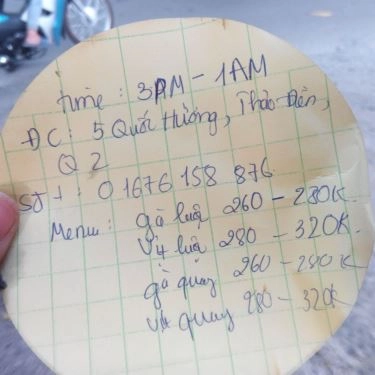 time : 3PM - 1AM
ĐC : 5 Quốc Hương, Thảo Điền,
Q2
SĐT : 01676 158 876
Menu : gà luộc 260 - 280K.
Vịt luộc 280 - 320K.
gà quay 260 - 280K
vịt quay 280 - 320K